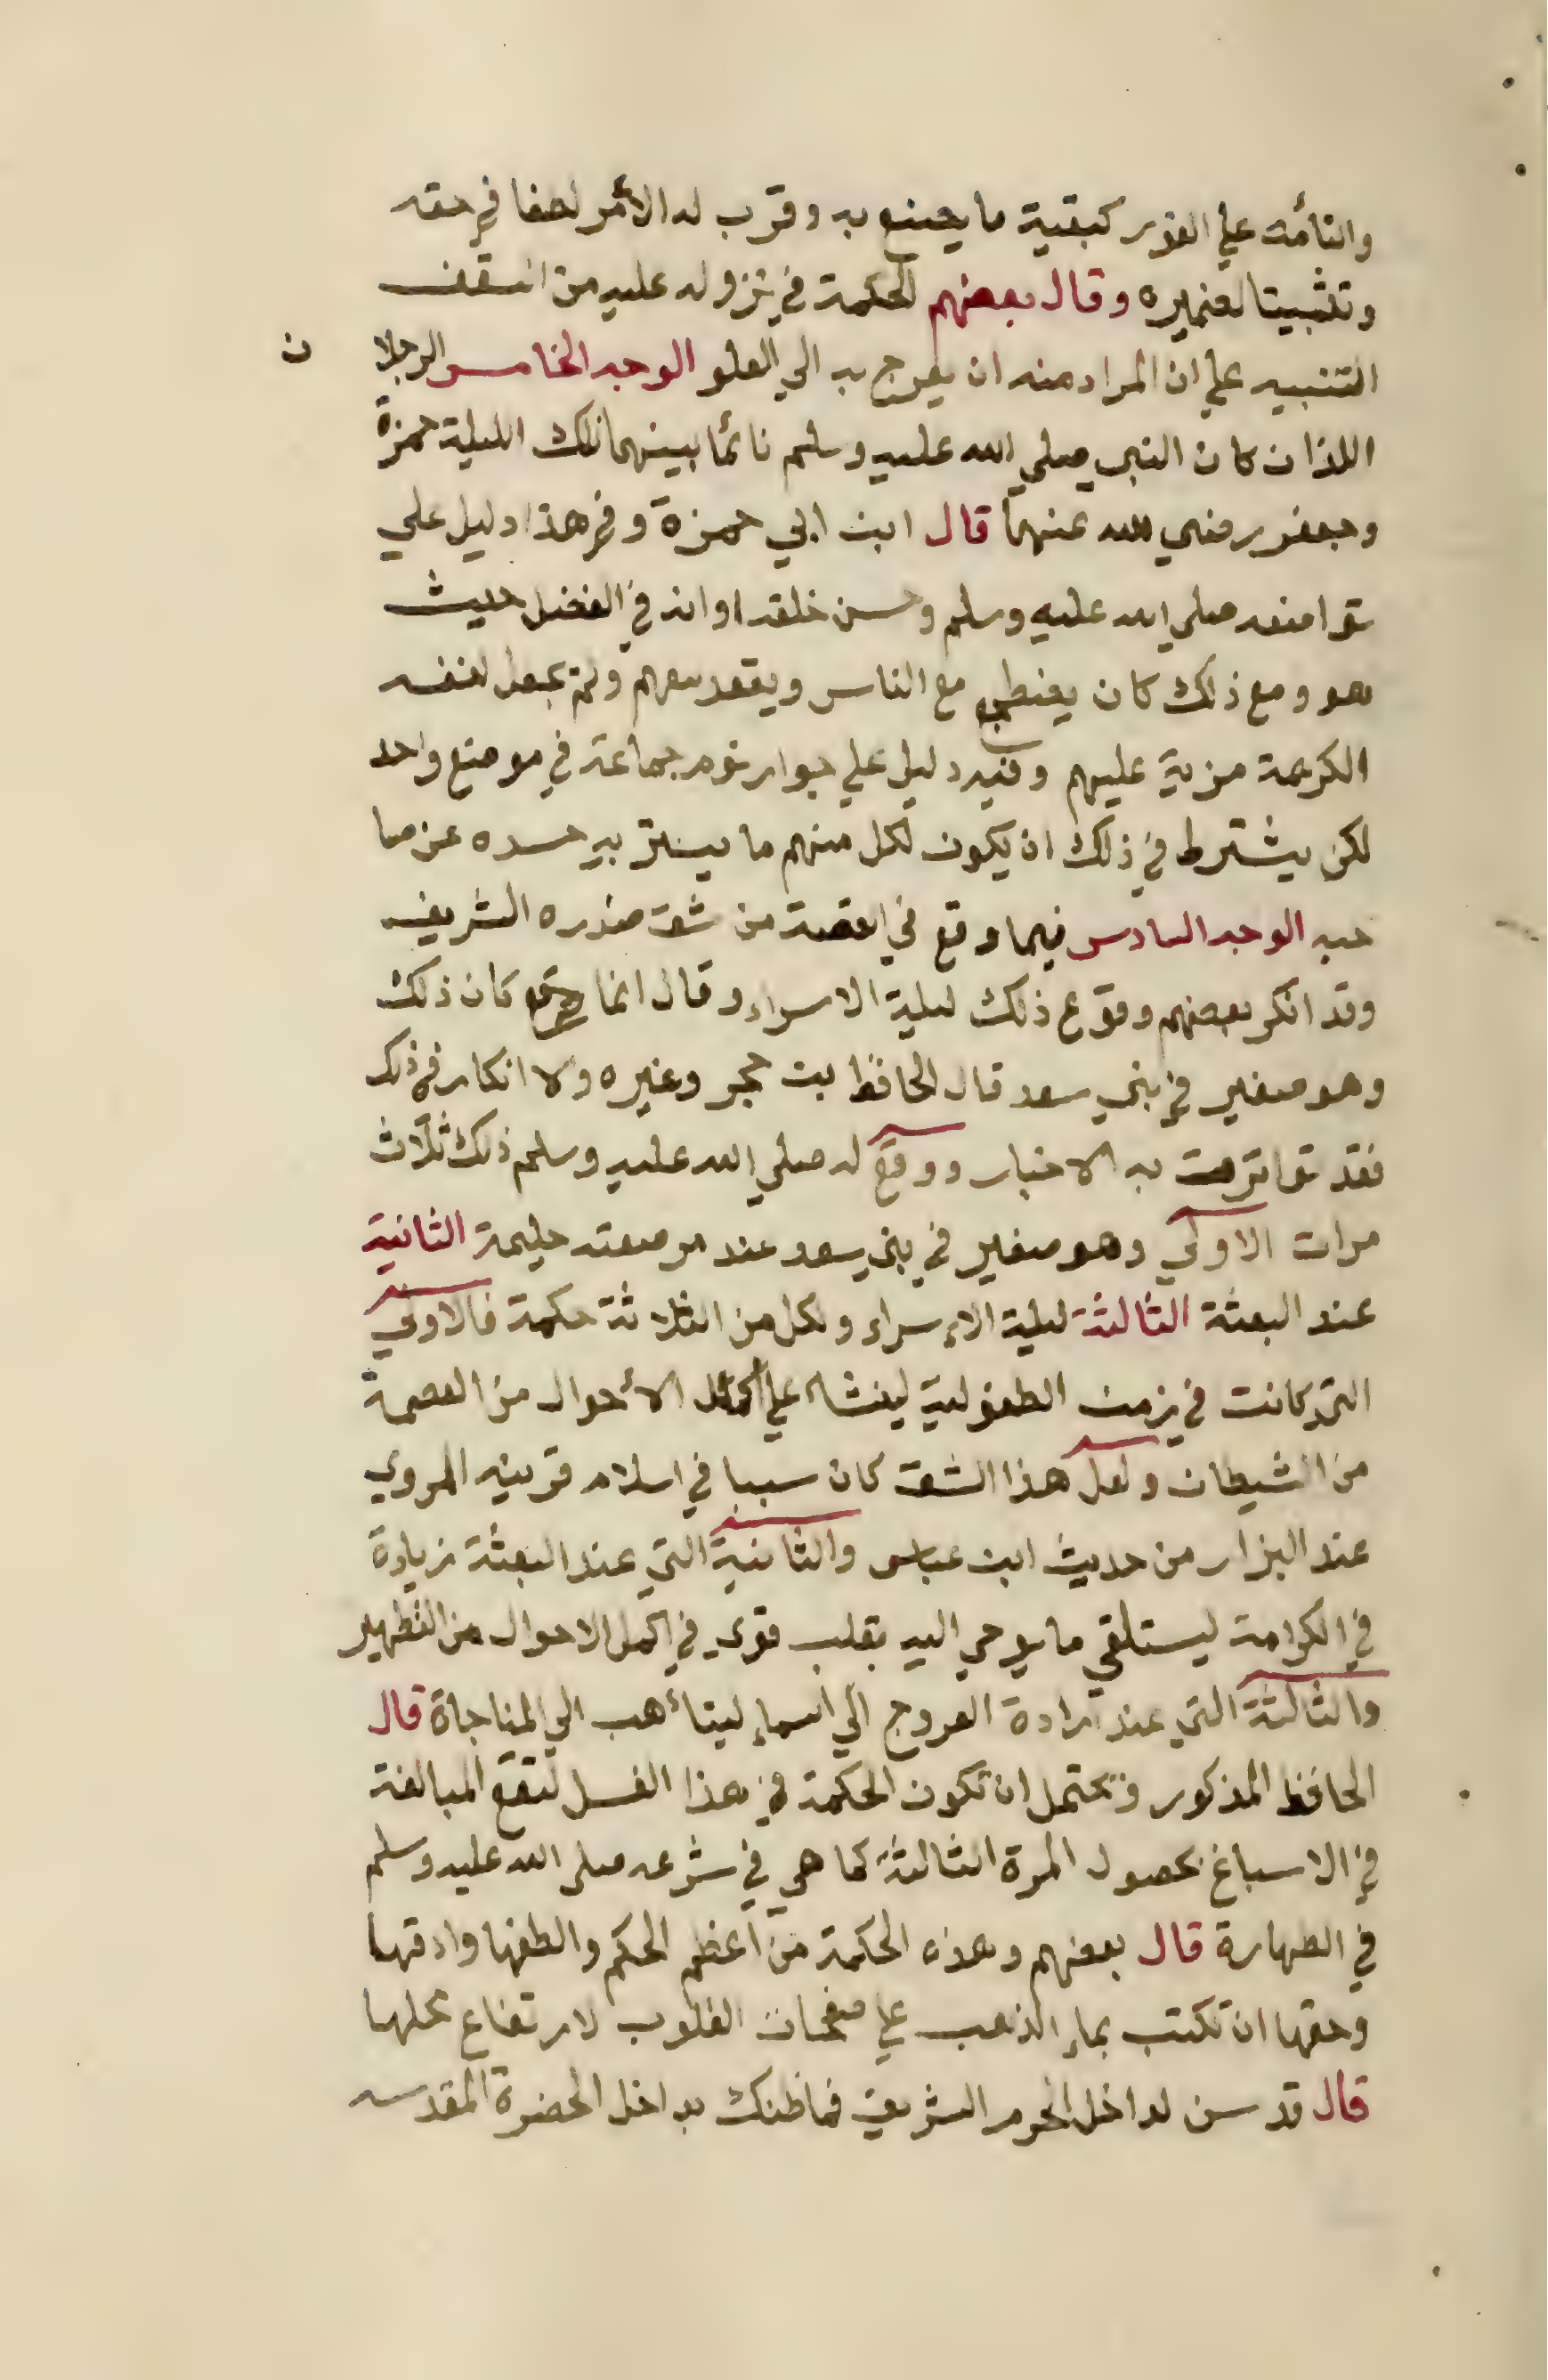 والتأمه علي الفور كبقية ما يصنع به وقرب له الأمر لطفا في حقه
وتثبيتا لضميره وقال بعضهم الحكمة في نزوله عليه من السقف
التنبيه علي ان المراد منه ان يعرج به الي العلو الوجه الخامس الرجلا ن
اللذان كان النبي صلي الله عليه وسلم نائما بينهما تلك الليلة حمزة
وجعفر رضي الله عنهما قال ابن ابي حمزة وفي هذا دليل علي
تواضعه صلي الله عليه وسلم وحسن خلقه اوانه في الفضل حيث
هو ومع ذلك كان يضطجع مع الناس ويقعد معهم ولم يجعل لنفسه
الكريمة مزية عليهم وفيه دليل علي جواز نوم جماعة في موضع واحد
لكن يشترط في ذلك ان يكون لكل منهم ما يستر به جسده عن صا
حبه الوجه السادس فيما وقع في القصة من شق صدره الشريف
وقد انكر بعضهم وقوع ذلك ليلة الاسراء وقال انما وقع كان ذلك
وهو صغير في بني سعد قال الحافظ بن حجر وغيره ولا انكار في ذلك
فقد تواترت به الاخبار ووقع له صلي الله عليه وسلم ذلك ثلاث
مرات الاولي وهو صغير في بني سعد عند مرضعته حليمة الثانية
عند البعثة الثالثة ليلة الاسراء ولكل من الثلاثة حكمة فالاولي
التي كانت في زمن الطفولية لينشا علي اكمل الأحوال من العصمة
من الشيطان ولعل هذا الشق كان سببا في اسلام قرينه المروي
عند البزار من حديث ابن عباس والثانية التي عند البعثة زيادة
في الكرامة ليستلقي ما يوحي اليه بقلب قوي في اكمل الاحوال من التطهير
والثالثة التي عند ارادة العروج الي السماء ليتأهب الي المناجاة قال
الحافظ المذكور ويحتمل ان تكون الحكمة في هذا الغسل لتقع المبالغة
في الاسباغ بحصول المرة الثالثة كما هي في شرعه صلي الله عليه وسلم
في الطهارة قال بعضهم وهذه الحكمة من أعظم الحكم والطفها وادقها
وحقها ان تكتب بماء الذهب علي صفحات القلوب لارتفاع محلها
قال قد سن لداخل الحرم الشريف فما ظنك بداخل الحضرة المقدسه